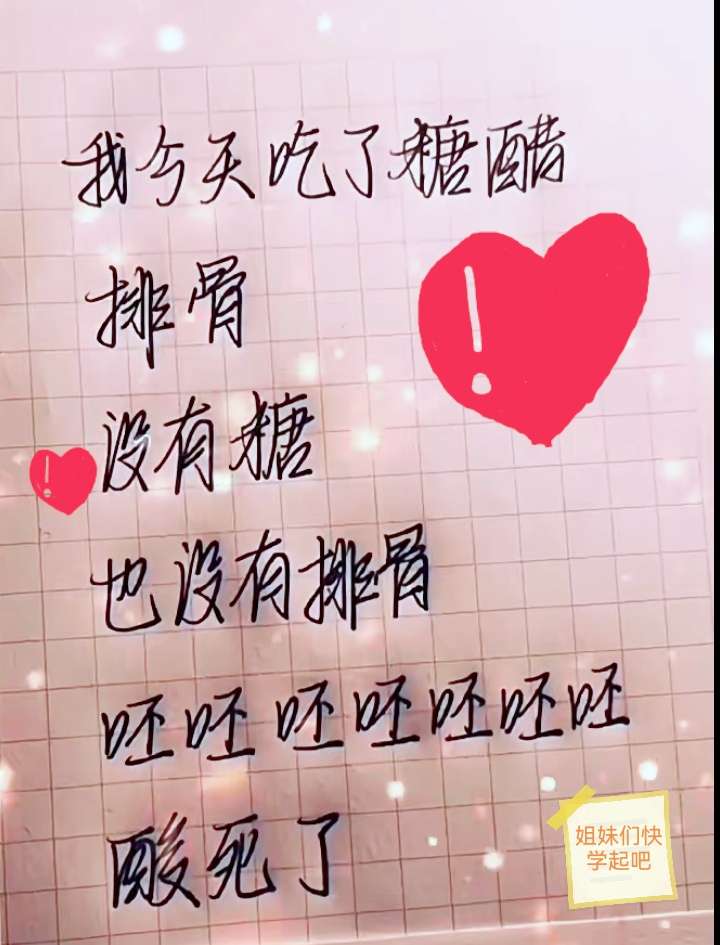 我今天吃了糖醋
排骨
没有糖
也没有排骨
呸呸呸呸呸呸呸
酸死了
姐妹们快
学起吧